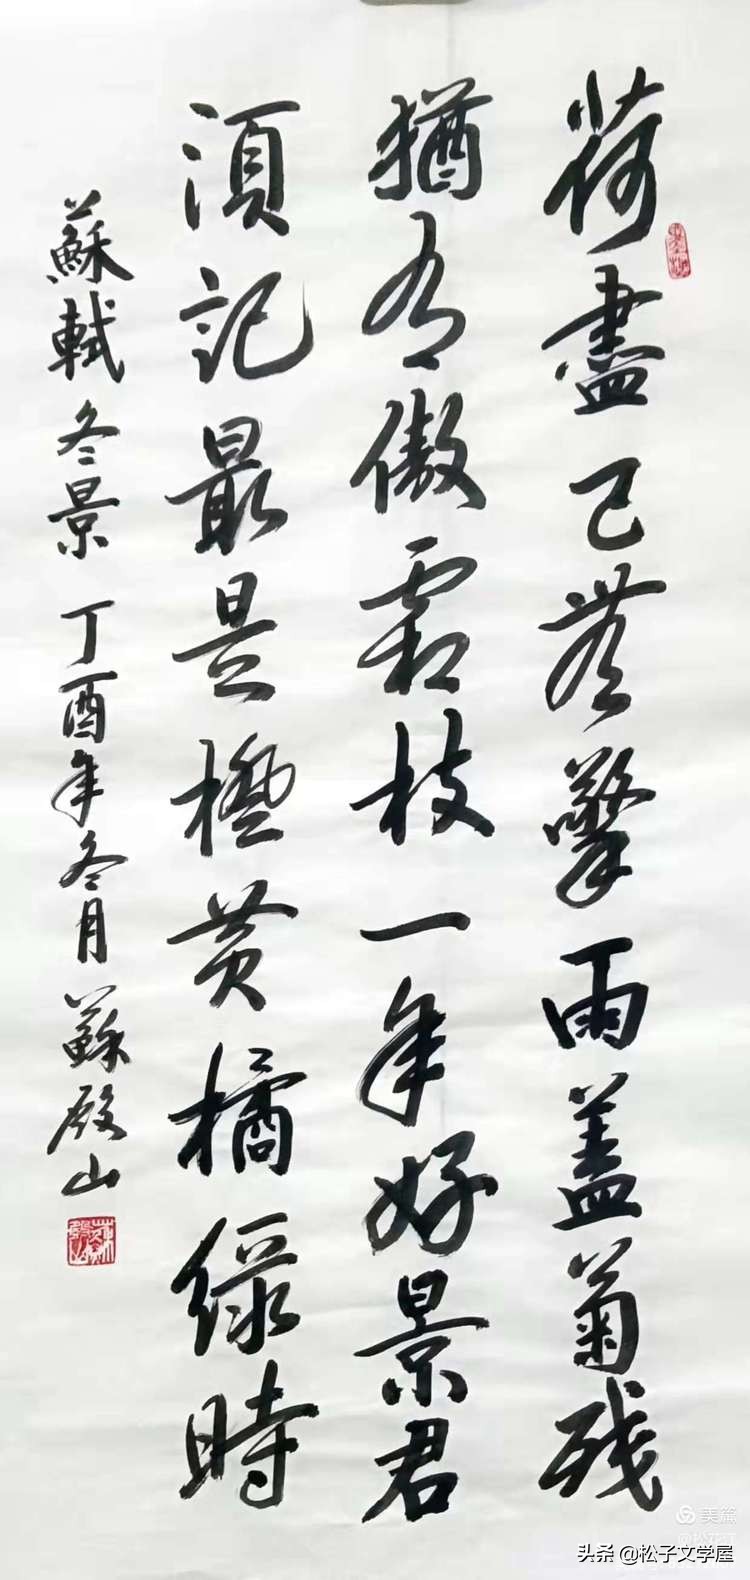 荷盡已無擎雨蓋菊残
猶有傲霜枝一年好景君
須記最是橙黄橘緑時
蘇軾冬景丁酉年冬月蘇殿山
美篇
头条@松子文学屋